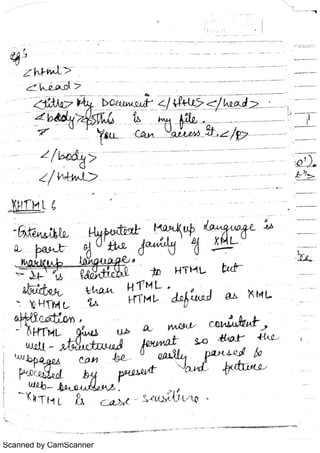 eg:
<html>
<head>
<title> My Document </title></head>
<body><p>This is my file.
You can access it.</p>
</body>
</html>
XHTML :
- Extensible Hypertext MarkUp Language is
a part of the family of XML
markup language.
- It is identical to HTML but
stricter than HTML.
- XHTML is HTML defined as XML
application.
- XHTML gives us a more consistent,
well-structured format so that the
webpages can be easily parsed &
processed by present and future
web-browsers.
- XHTML is case-sensitive.
Scanned by CamScanner